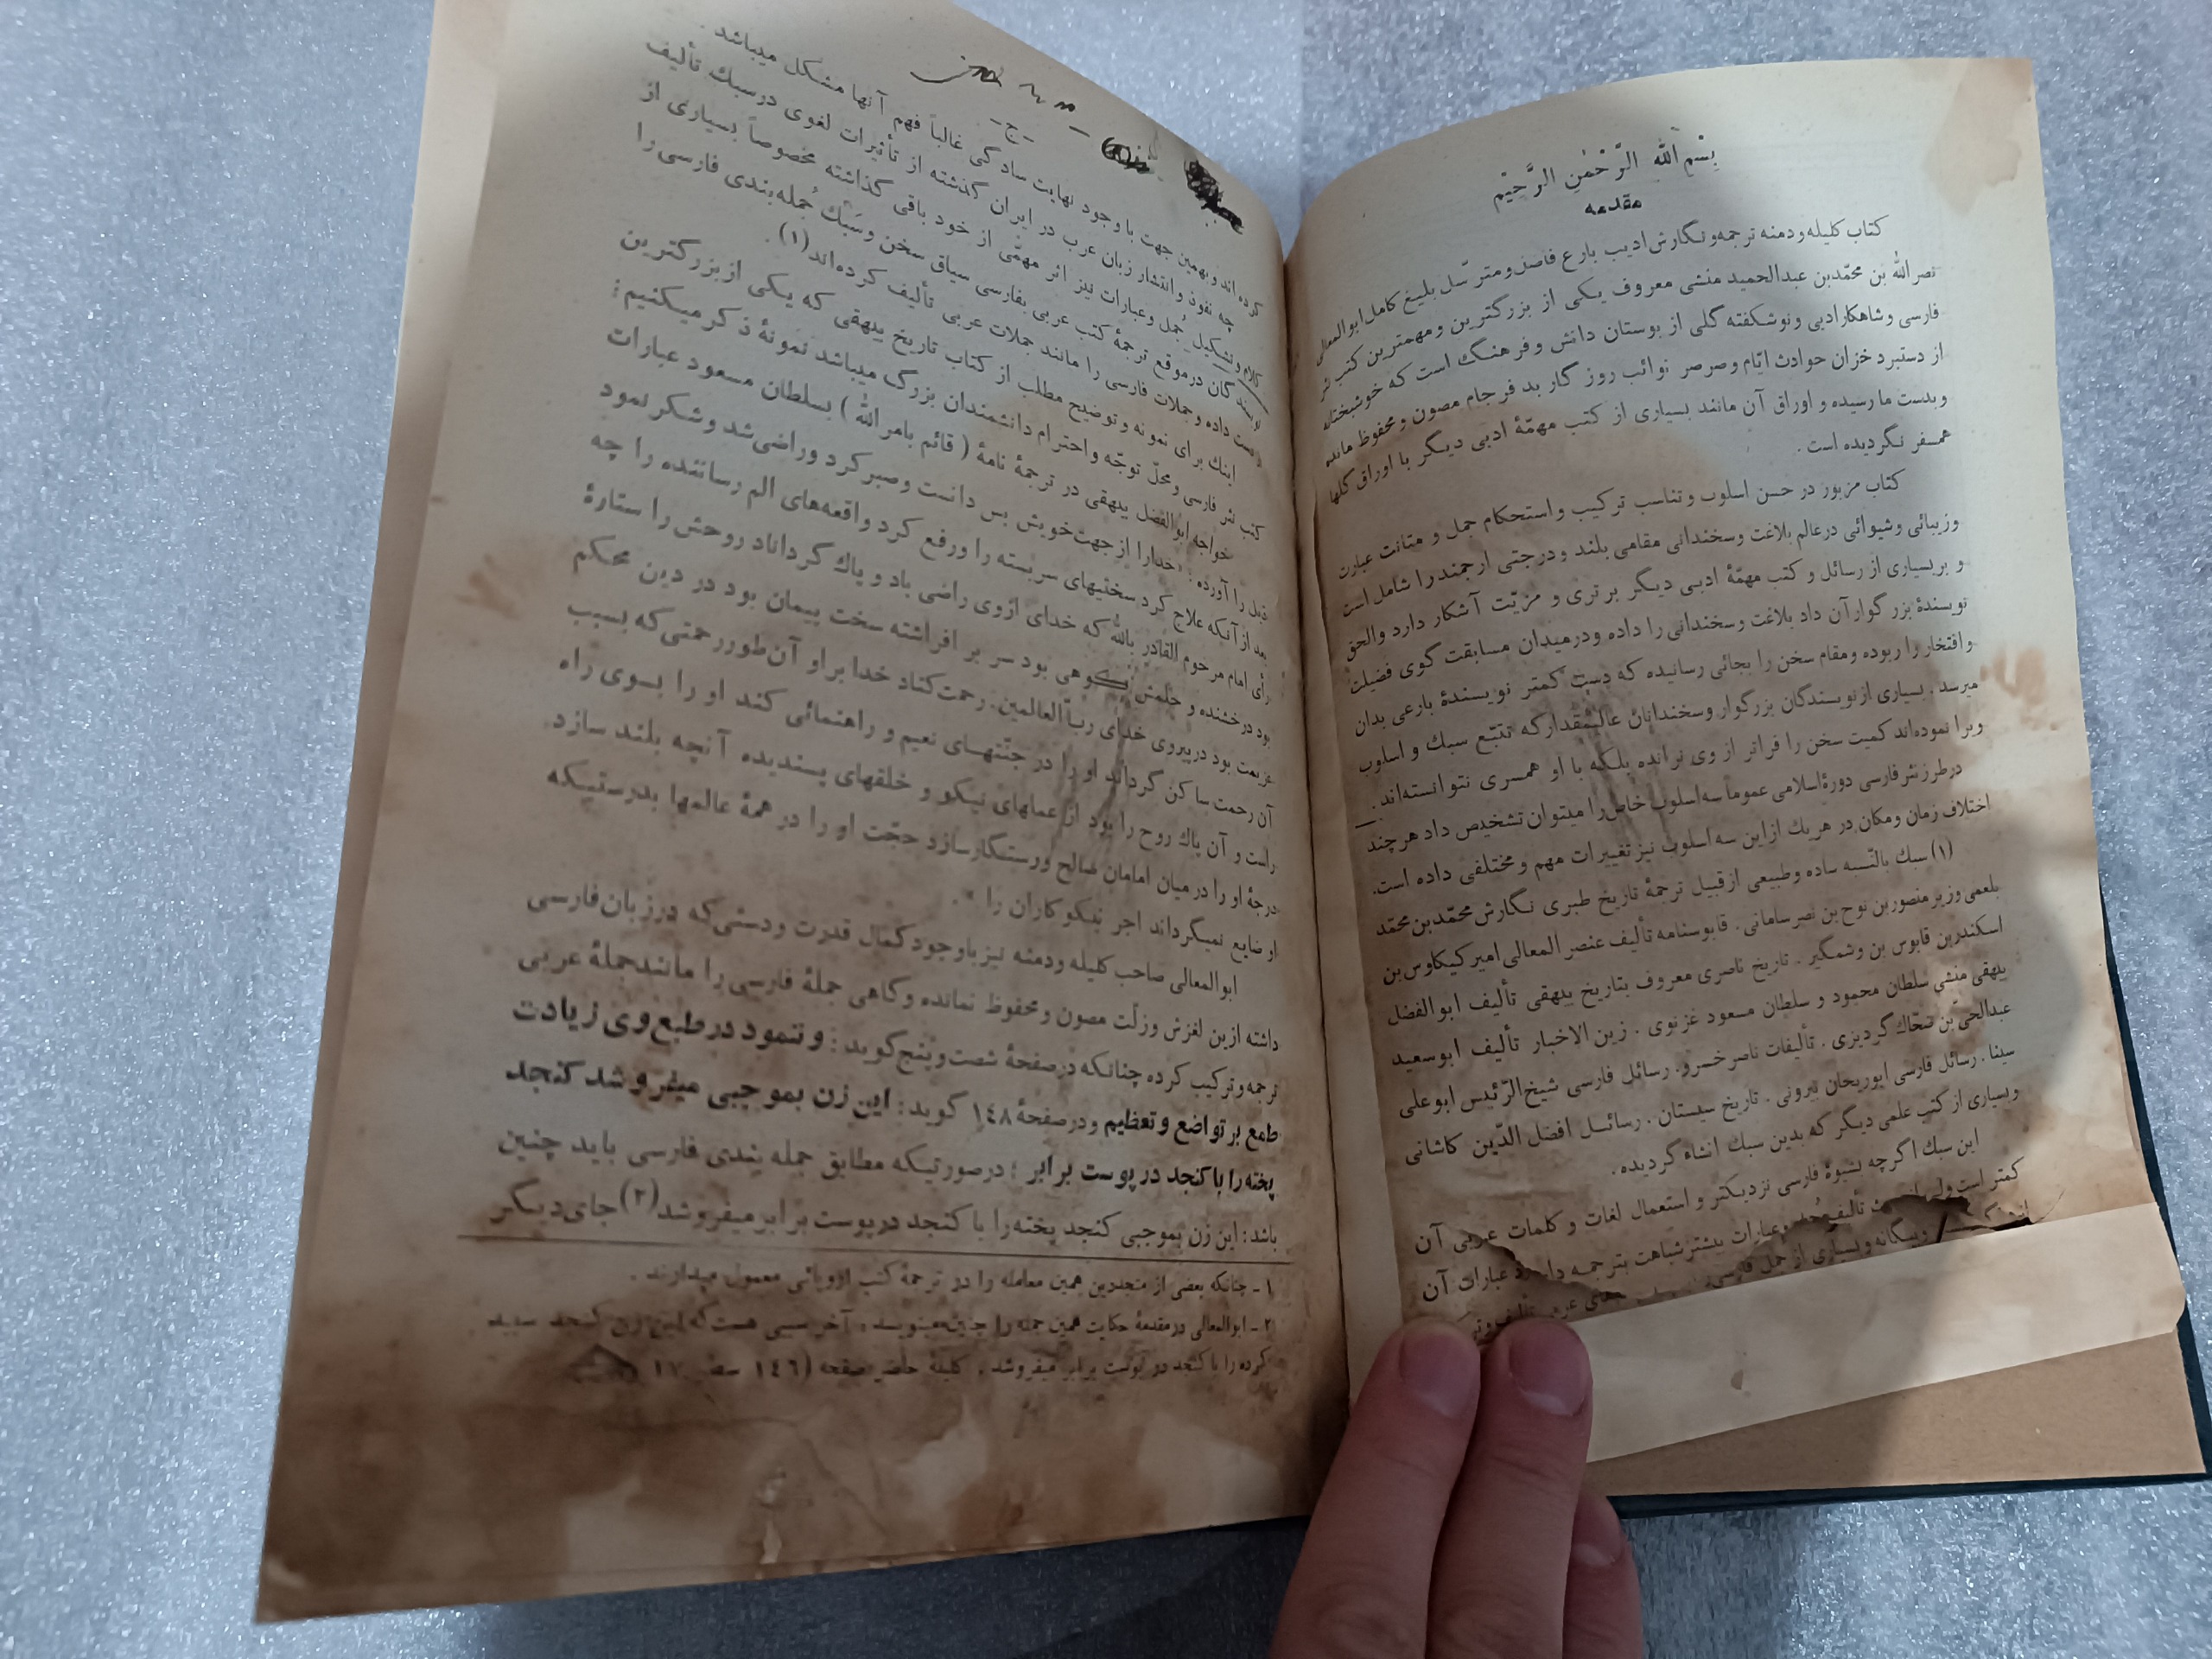 بِسْمِ اللهِ الرَّحْمٰنِ الرَّحِیْمِ
مقدمه
کتاب کلیله و دمنه ترجمه و نگارش ادیب بارع فاضل و مترسّل بلیغ کامل ابوالمعالی
نصرالله بن محمّدبن عبدالحمید منشی معروف یکی از بزرگترین و مهمترین کتب نثر
فارسی و شاهکار ادبی و نوشکفته گلی از بوستان دانش و فرهنگ است که خوشبختانه
از دستبرد خزان حوادث ایّام و صرصر نوائب روزگار بد فرجام مصون و محفوظ مانده
و بدست ما رسیده و اوراق آن مانند بسیاری از کتب مهمّهٔ ادبی دیگر با اوراق گلها
همسفر نگردیده است .
کتاب مزبور در حسن اسلوب و تناسب ترکیب و استحکام جمل و متانت عبارت
و زیبائی و شیوائی در عالم بلاغت و سخندانی مقامی بلند و درجتی ارجمند را شامل است
و بر بسیاری از رسائل و کتب مهمّهٔ ادبی دیگر برتری و مزیّت آشکار دارد والحق
نویسندهٔ بزرگوار آن داد بلاغت و سخندانی را داده و در میدان مسابقت گوی فضیلت
و افتخار را ربوده و مقام سخن را بجائی رسانیده که دست کمتر نویسندهٔ بارعی بدان
میرسد . بسیاری از نویسندگان بزرگوار و سخندانان عالیمقدار که تتبّع سبك و اسلوب
ویرا نموده‌اند کمیت سخن را فراتر از وی نرانده بلکه با او همسری نتوانسته‌اند .
در طرز نثر فارسی دورهٔ اسلامی عموماً سه اسلوب خاص را میتوان تشخیص داد هر چند
اختلاف زمان و مکان در هریك از این سه اسلوب نیز تغییرات مهم و مختلفی داده است.
(۱) سبك بالنّسبه ساده و طبیعی از قبیل ترجمهٔ تاریخ طبری نگارش محمّدبن محمّد
بلعمی وزیر منصور بن نوح بن نصر سامانی . قابوسنامه تألیف عنصر المعالی امیر کیکاوس بن
اسکندر بن قابوس بن وشمگیر . تاریخ ناصری معروف بتاریخ بیهقی تألیف ابوالفضل
بیهقی منشی سلطان محمود و سلطان مسعود غزنوی . زین الاخبار تألیف ابوسعید
عبدالحی بن ضحّاك گردیزی . تألیفات ناصر خسرو . رسائل فارسی شیخ الرّئیس ابوعلی
سینا . رسائل فارسی ابوریحان بیرونی . تاریخ سیستان . رسائل افضل الدّین کاشانی
و بسیاری از کتب علمی دیگر که بدین سبك انشاء گردیده .
این سبك اگرچه بشیوهٔ فارسی نزدیکتر و استعمال لغات و کلمات عربی آن
کمتر است ولی تألیف جمل و عبارات بیشتر شباهت بترجمه دارد و عبارات آن
و بیگانه و بسیاری از جمل فارسی
- ج -
کرده‌اند و بهمین جهت با وجود نهایت سادگی غالباً فهم آنها مشکل میباشد .
چه نفوذ و انتشار زبان عرب در ایران گذشته از تأثیرات لغوی در سبك تألیف
کلام و تشکیل جُمل و عبارات نیز اثر مهمّی از خود باقی گذاشته مخصوصاً بسیاری از
نویسندگان در موقع ترجمهٔ کتب عربی بفارسی سیاق سخن و سَبك جُمله‌بندی فارسی را
از دست داده و جملات فارسی را مانند جملات عربی تألیف کرده‌اند(۱) .
اینك برای نمونه و توضیح مطلب از کتاب تاریخ بیهقی که یکی از بزرگترین
کتب نثر فارسی و محلّ توجّه و احترام دانشمندان بزرگ میباشد نمونهٔ ذکر میکنیم :
خواجه ابوالفضل بیهقی در ترجمهٔ نامهٔ ( قائم بامرالله ) بسلطان مسعود عبارات
ذیل را آورده : «خدارا از جهت خویش بس دانست و صبر کرد و راضی شد و شکر نمود
بعد از آنکه علاج کرد سختیهای سربسته را و رفع کرد واقعه‌های الم رساننده را چه
رأی امام مرحوم القادر بالله که خدای ازوی راضی باد و پاك گرداناد روحش را ستارهٔ
بود درخشنده و حلمش کوهی بود سر بر افراشته سخت پیمان بود در دین محکم
عزیمت بود در پیروی خدای ربّ العالمین . رحمت کناد خدا بر او آن طور رحمتی که بسبب
آن رحمت ساکن گرداند او را در جنّتهای نعیم و راهنمائی کند او را بسوی راه
راست و آن پاك روح را بود از عملهای نیکو و خلقهای پسندیده آنچه بلند سازد
درجهٔ او را در میان امامان صالح و رستگار سازد حجّت او را در همهٔ عالمها بدرستیکه
او ضایع نمیگرداند اجر نیکوکاران را » .
ابوالمعالی صاحب کلیله و دمنه نیز باوجود کمال قدرت و دستی که در زبان فارسی
داشته ازین لغزش وزلّت مصون و محفوظ نمانده و گاهی جملهٔ فارسی را مانند جملهٔ عربی
ترجمه و ترکیب کرده چنانکه در صفحهٔ شصت و پنج گوید : و ننمود در طبع وی زیادت
طمع بر تواضع و تعظیم و در صفحهٔ ۱۴۸ گوید : این زن بموجبی میفروشد کنجد
پخته را با کنجد در پوست برابر ؛ درصورتیکه مطابق جمله بندی فارسی باید چنین
باشد : این زن بموجبی کنجد پخته را با کنجد در پوست برابر میفروشد(۲) جای دیگر
۱ - چنانکه بعضی از متجددین همین معامله را در ترجمهٔ کتب اروپائی معمول میدارند .
۲ - ابوالمعالی در مقدمهٔ حکایت همین جمله را چنین مینویسد : آخر سببی هست که این زن کنجد سپید
کرده را با کنجد در پوست برابر میفروشد . کلیلهٔ حاضر صفحه (۱۴۶ سطر ۱۷